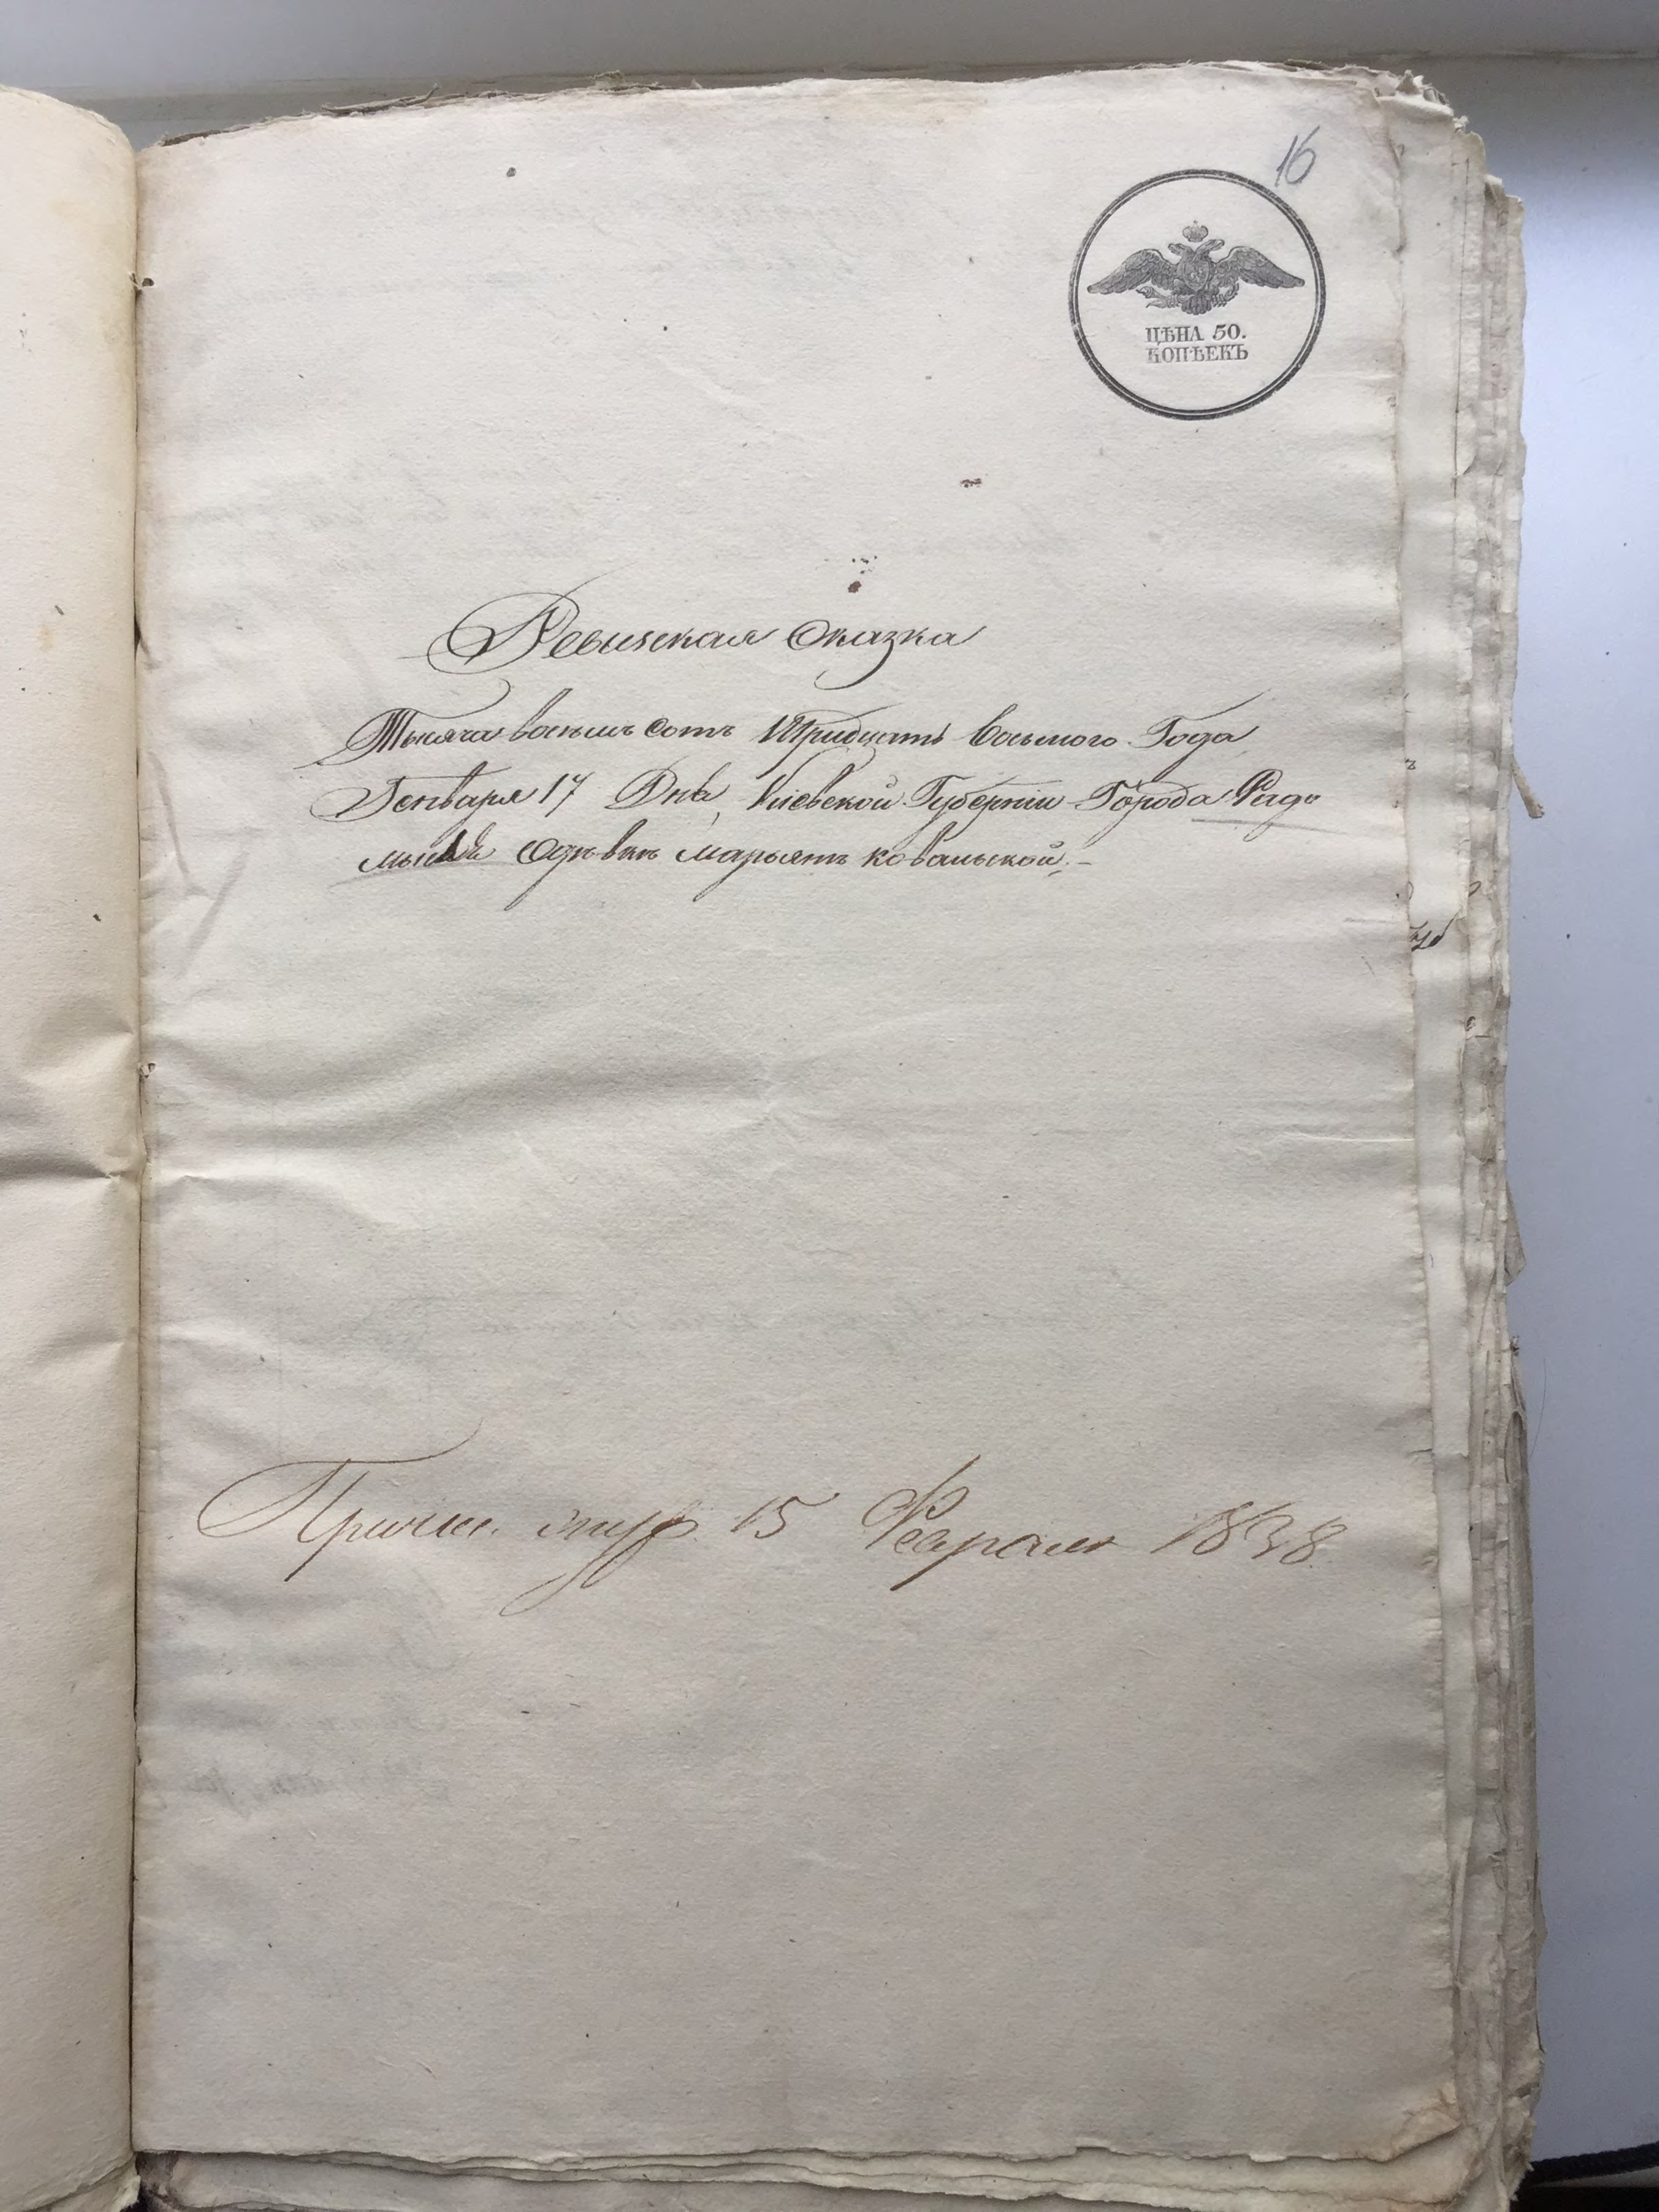 16
ЦѢНА 50.
КОПѢЕКЪ
Ревизская Сказка
Тысяча восемь сотъ Тридцать восьмого Года
Генваря 17 Дня, Кіевской Губерніи Города Радо
мысля Марьянъ Ковальской.
15 Февраля 1838